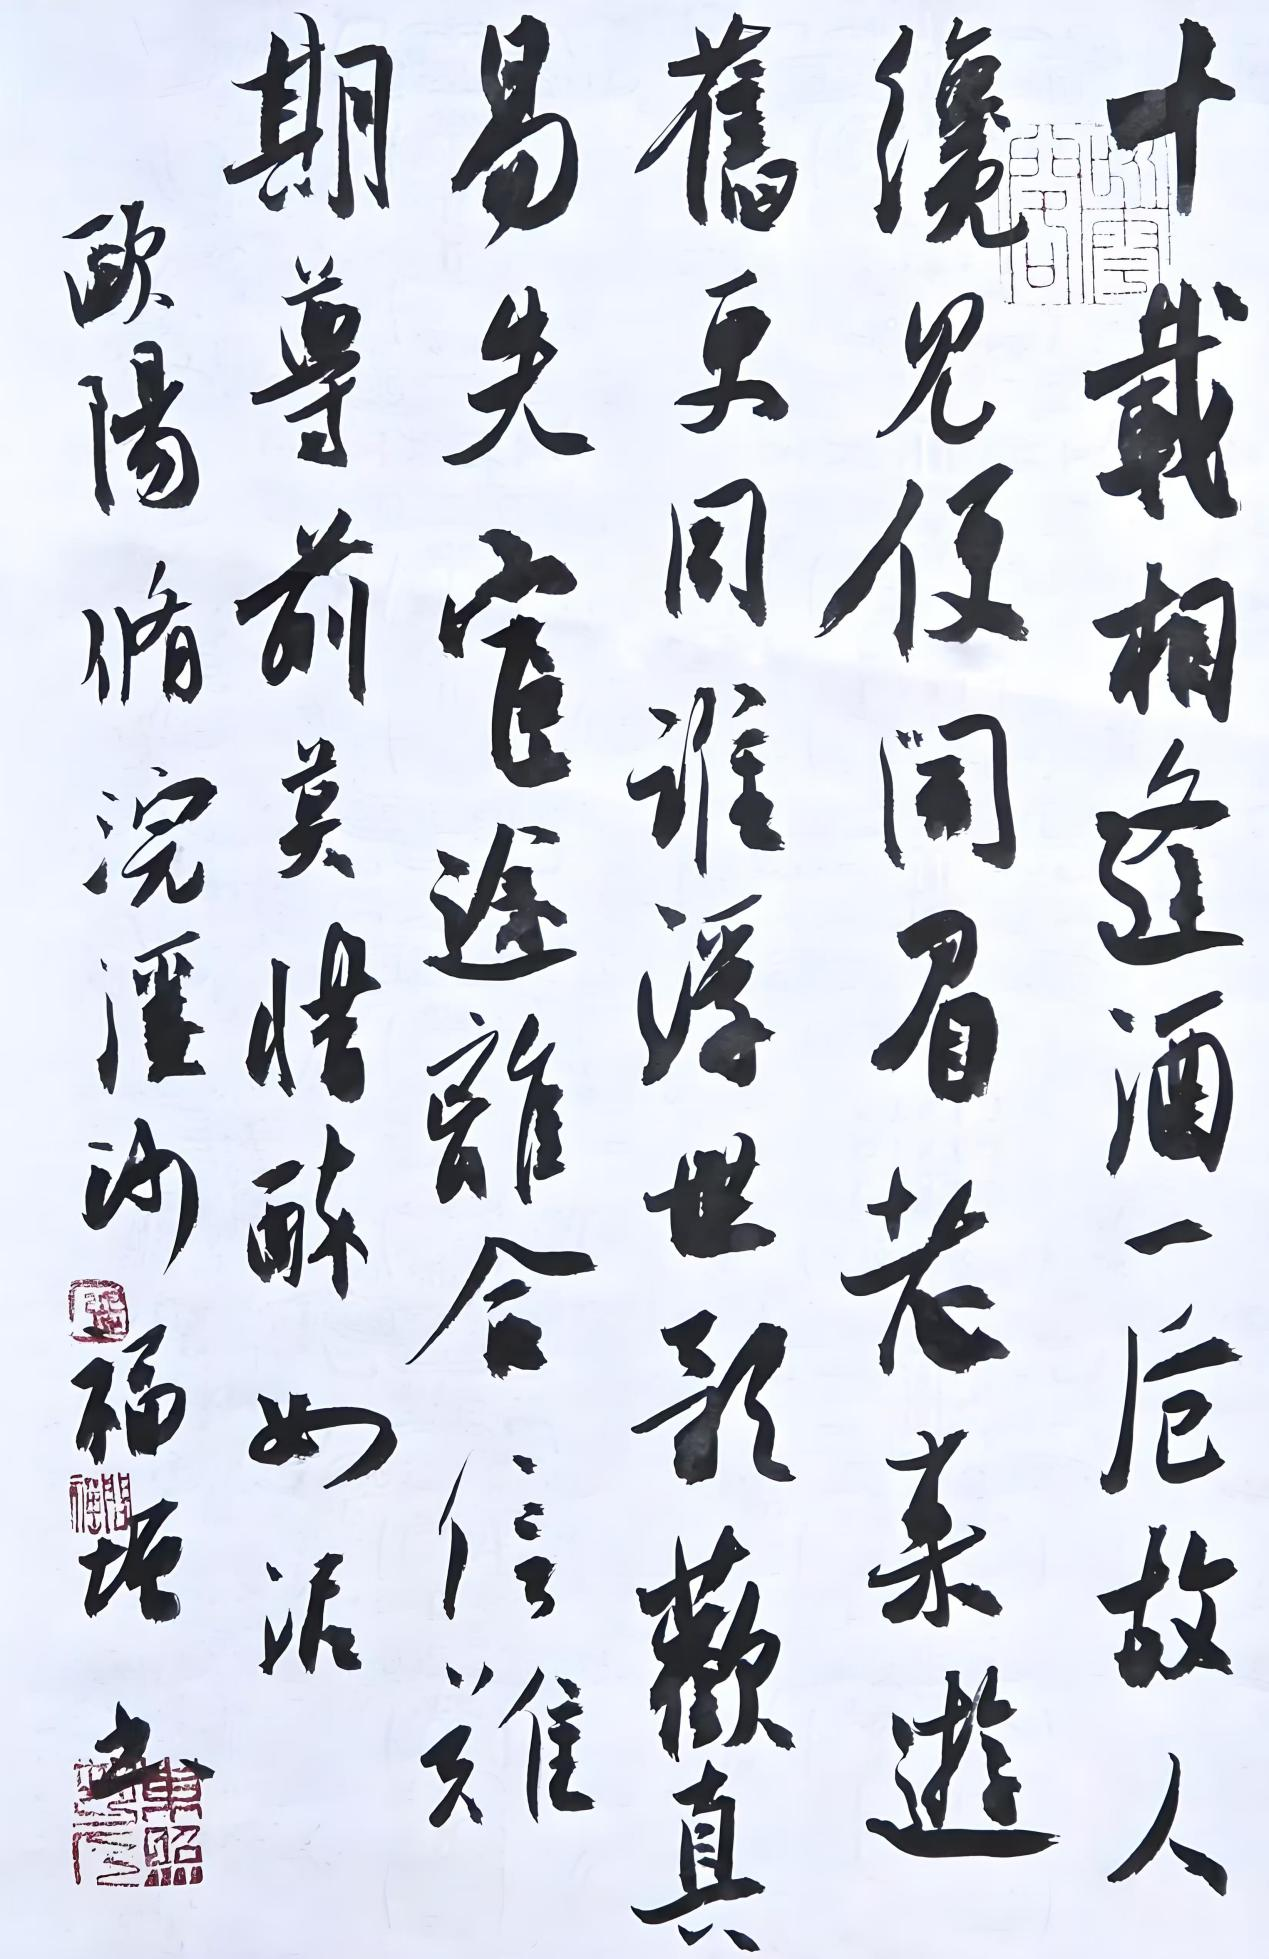 十載相逢酒一卮故人
纔見便開眉老來遊
舊更同誰浮世歌歡真
易失宦途離合信難
期尊前莫惜醉如泥
歐陽脩浣溪沙 福堀書